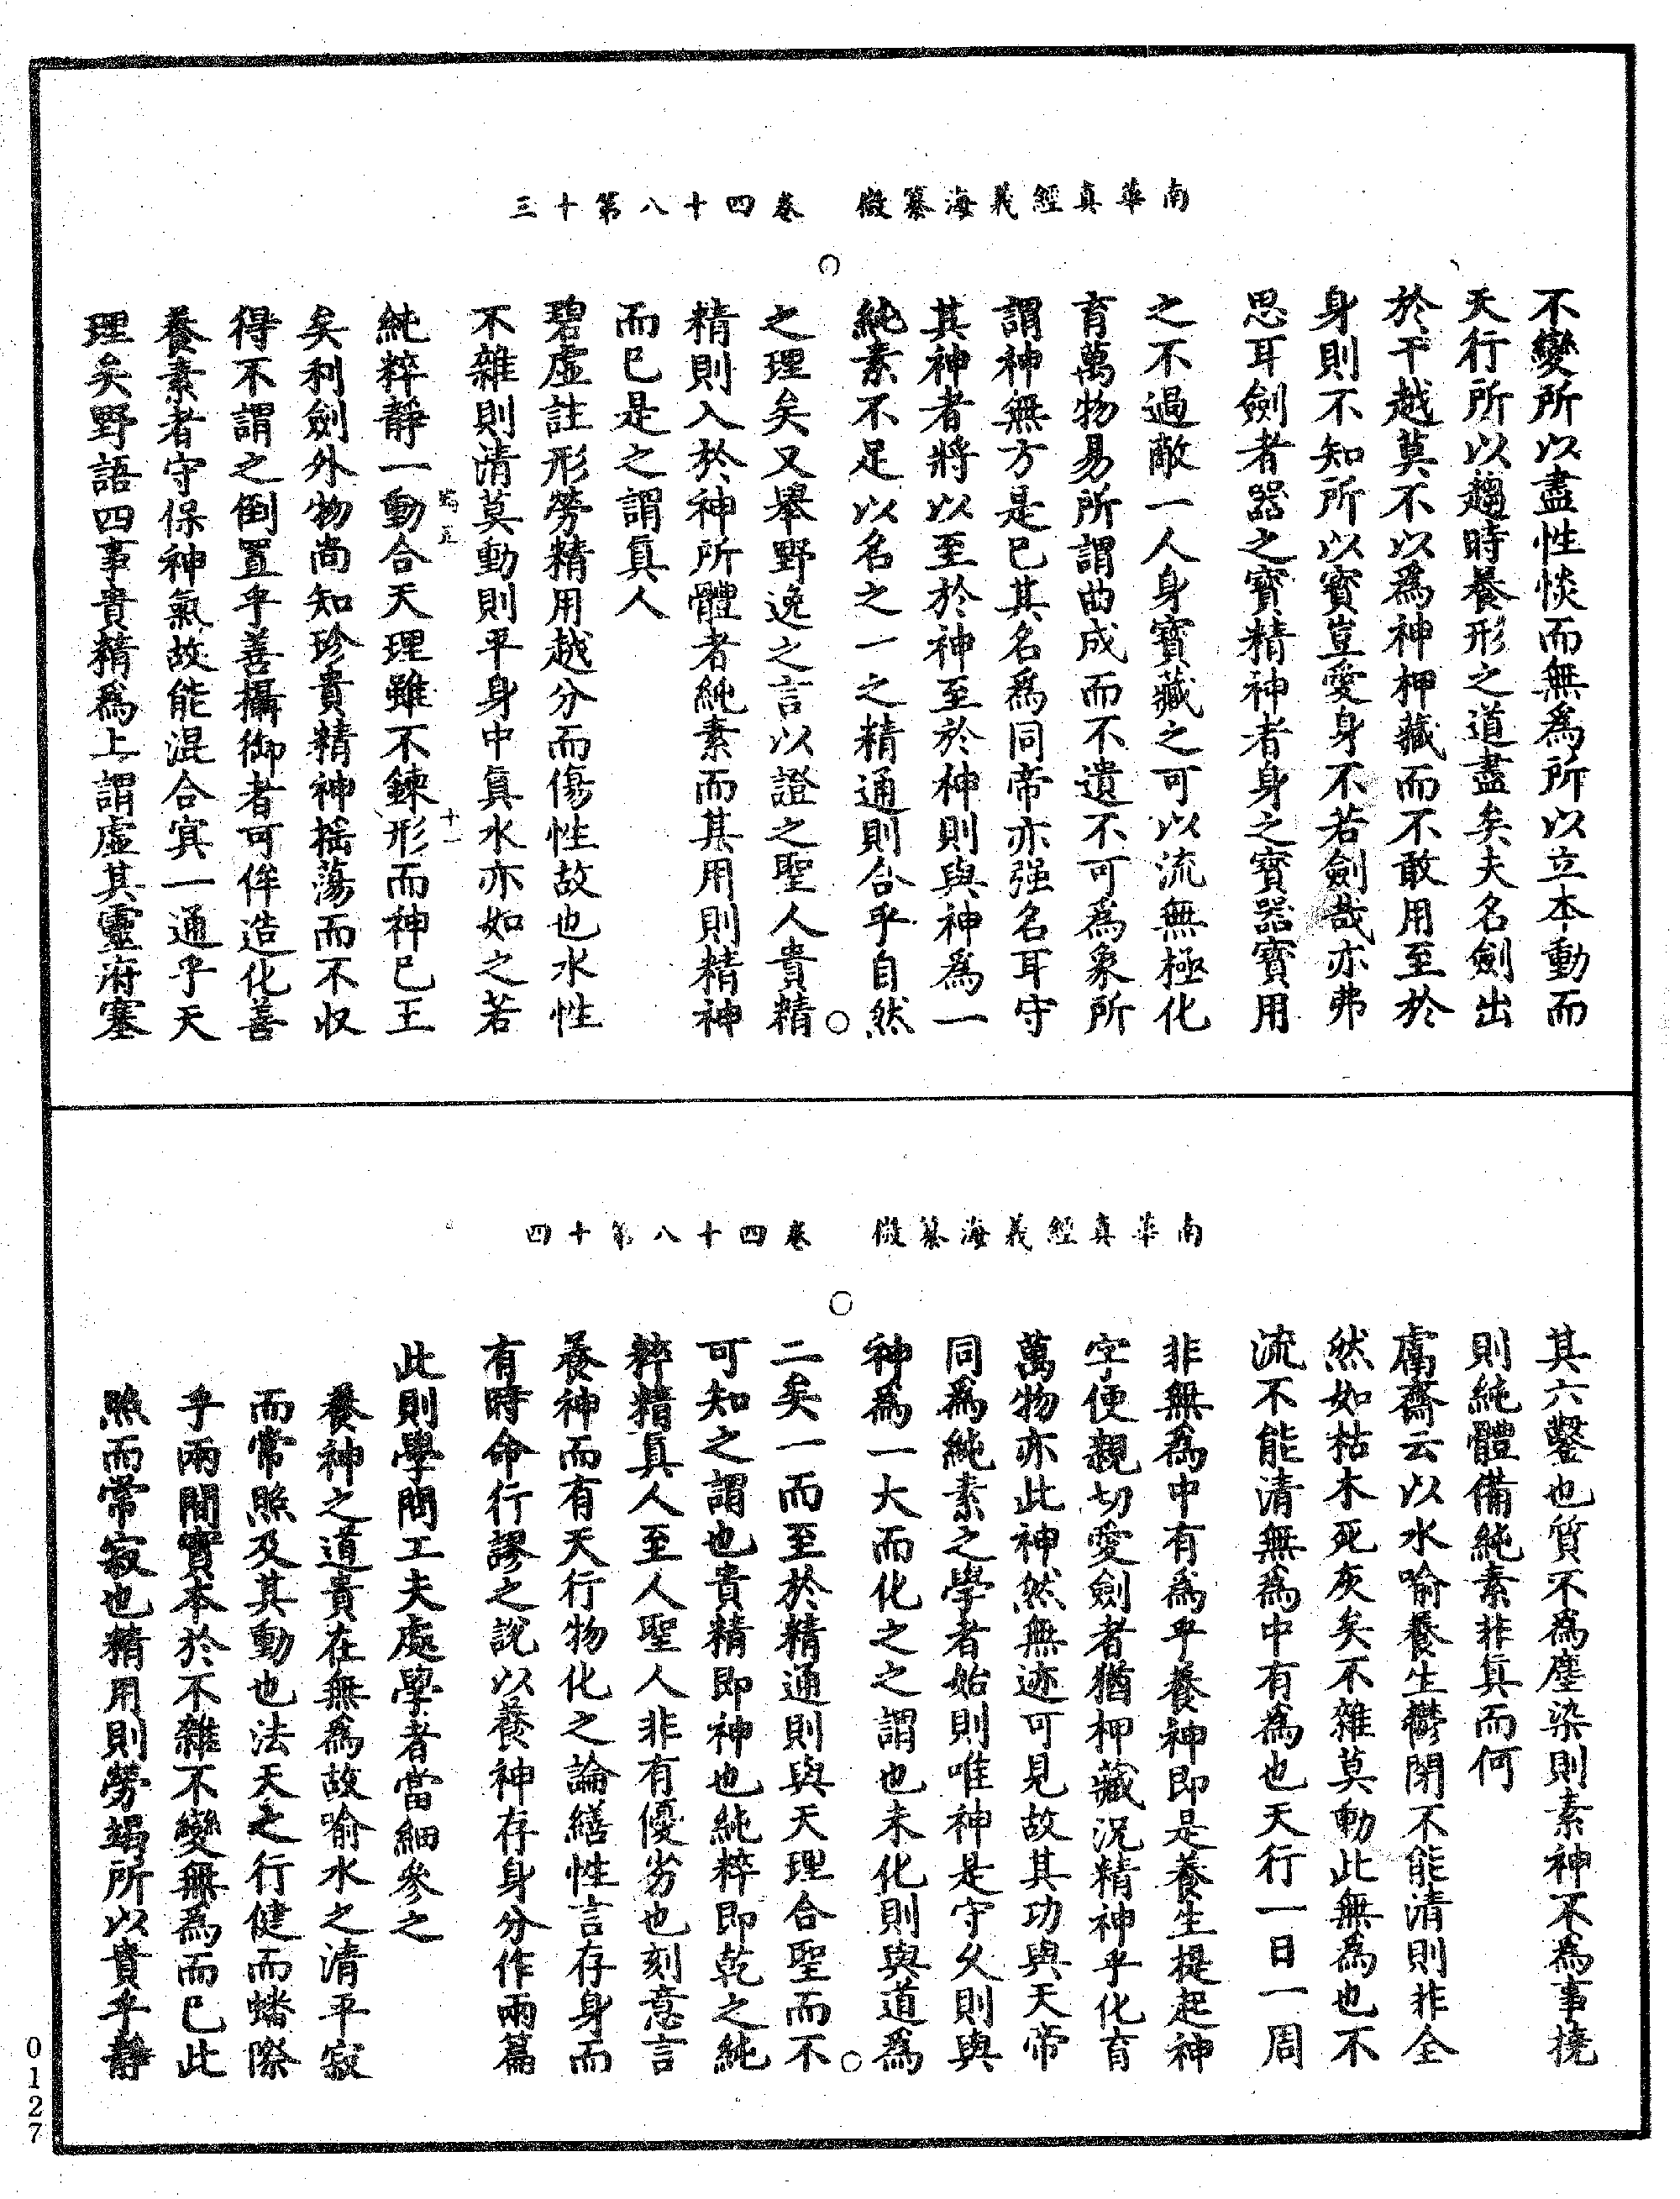 南華真經義海纂微　卷四十八第十三
不變所以盡性惔而無為所以立本動而
天行所以趨時養形之道盡矣夫名劍出
於干越莫不以為神柙藏而不敢用至於
身則不知所以寶豈愛身不若劍哉亦弗
思耳劍者器之寶精神者身之寶器寶用
之不過敵一人身寶藏之可以流無極化
育萬物易所謂曲成而不遺不可為象所
謂神無方是已其名為同帝亦强名耳守
其神者將以至於神至於神則與神為一
純素不足以名之一之精通則合乎自然
之理矣又舉野逸之言以證之聖人貴精
精則入於神所體者純素而其用則精神
而已是之謂真人
碧虛註形勞精用越分而傷性故也水性
不雜則清莫動則平身中真水亦如之若
純粹靜一動合天理雖不鍊形而神已王
十一
矣利劍外物尚知珍貴精神搖蕩而不收
得不謂之倒置乎善攝御者可侔造化善
養素者守保神氣故能混合冥一通乎天
理矣野語四事貴精為上謂虛其靈府塞
南華真經義海纂微　卷四十八第十四
其六鑿也質不為塵染則素神不為事撓
則純體備純素非真而何
鬳齋云以水喻養生鬱閉不能清則非全
然如枯木死灰矣不雜莫動此無為也不
流不能清無為中有為也天行一日一周
非無為中有為乎養神即是養生提起神
字便親切愛劍者猶柙藏況精神乎化育
萬物亦此神然無迹可見故其功與天帝
同為純素之學者始則唯神是守久則與
神為一大而化之之謂也未化則與道為
二矣一而至於精通則與天理合聖而不
可知之謂也貴精即神也純粹即乾之純
粹精真人至人聖人非有優劣也刻意言
養神而有天行物化之論繕性言存身而
有時命行謬之說以養神存身分作兩篇
此則學問工夫處學者當細參之
養神之道貴在無為故喻水之清平寂
而常照及其動也法天之行健而蟠際
乎兩間實本於不雜不變無為而已此
照而常寂也精用則勞竭所以貴乎靜
0127